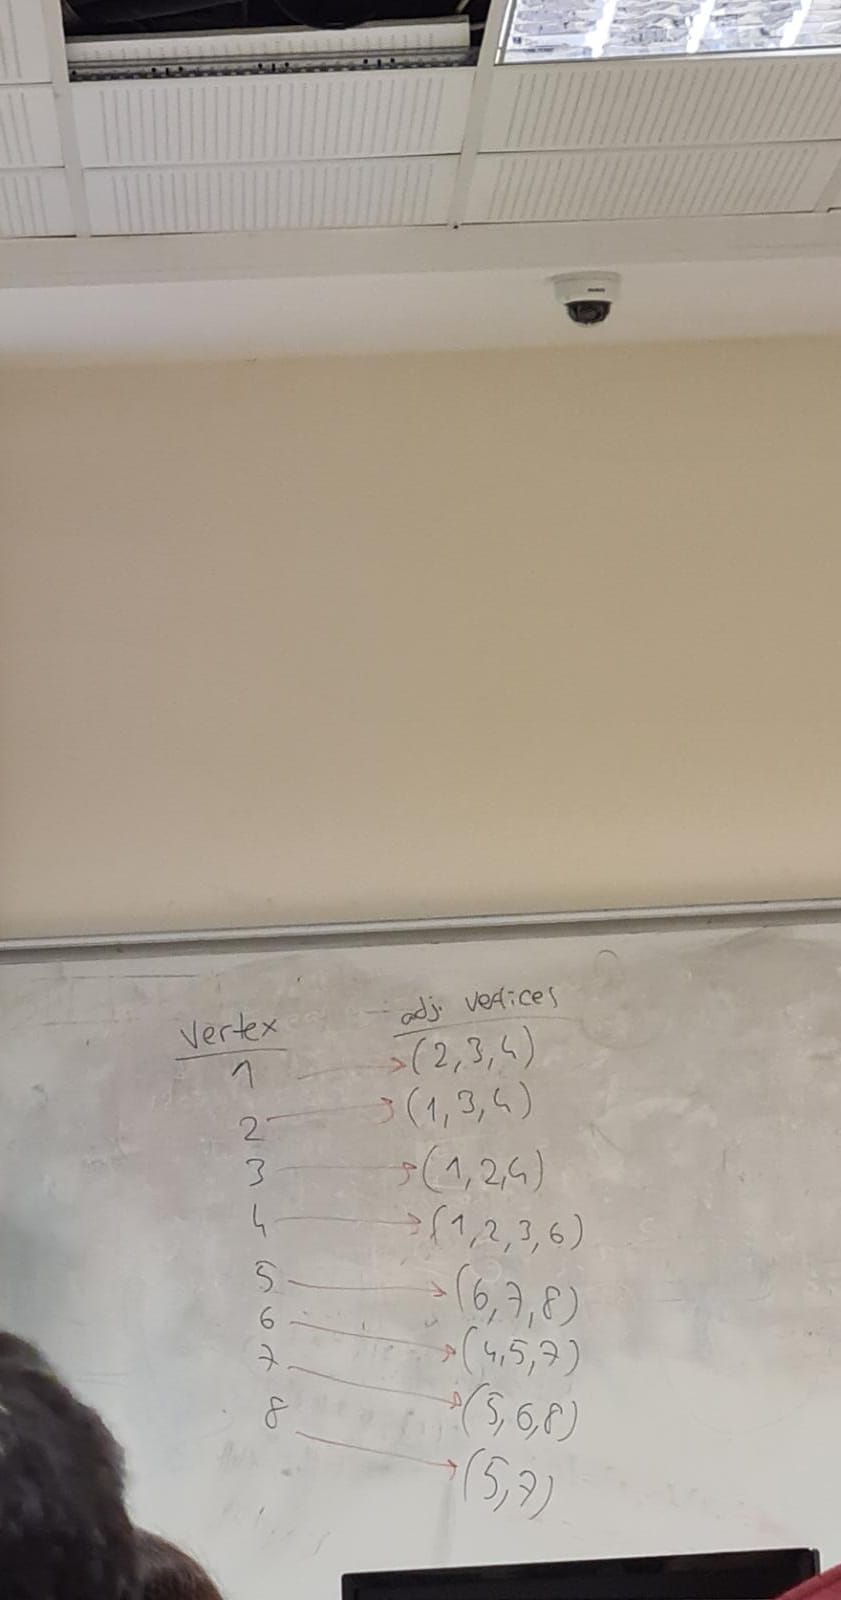 Vertex adj. vertices
1 (2,3,4)
2 (1,3,4)
3 (1,2,4)
4 (1,2,3,6)
5 (6,7,8)
6 (4,5,7)
7 (5,6,8)
8 (5,7)